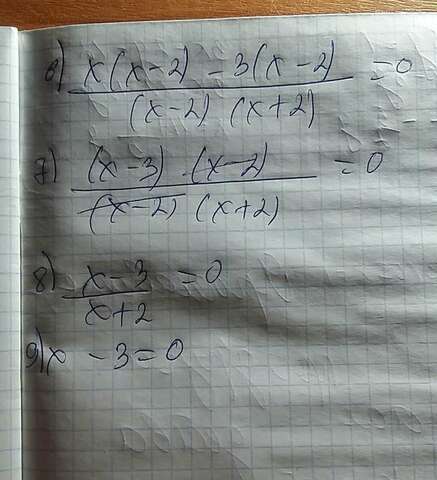 6) x(x-2) - 3(x-2) / (x-2) (x+2) = 0
7) (x-3) · (x-2) / (x-2) (x+2) = 0
8) x-3 / x+2 = 0
9) x - 3 = 0